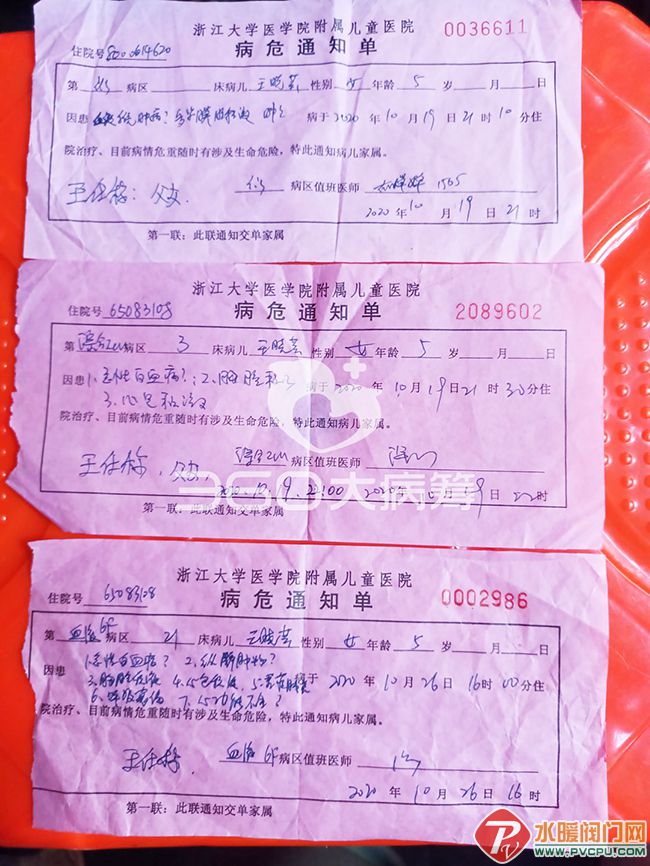 浙江大学医学院附属儿童医院
病危通知单
0036611
住院号
第 病区 床病儿 王晓芸 性别 女 年龄 5 岁 月 日
因患 病于 2020 年 10 月 19 日 21 时 10 分住
院治疗、目前病情危重随时有涉及生命危险，特此通知病儿家属。
病区值班医师
2020 年 10 月 19 日 21 时
第一联：此联通知交单家属
浙江大学医学院附属儿童医院
病危通知单
2089602
住院号 65083108
第 病区 3 床病儿 王晓芸 性别 女 年龄 5 岁 月 日
因患 1.急性白血病？；2.胸腔积液 病于 2020 年 10 月 19 日 21 时 30 分住
3.心包积液
院治疗、目前病情危重随时有涉及生命危险，特此通知病儿家属。
病区值班医师
360大病筹
2020 年 10 月 19 日 22 时
第一联：此联通知交单家属
浙江大学医学院附属儿童医院
病危通知单
0002986
住院号 65083108
第 血液 6F 病区 21 床病儿 王晓芸 性别 女 年龄 5 岁 月 日
因患 1.急性白血病？ 2.纵膈肿物？
3.胸腔积液 4.心包积液 病于 2020 年 10 月 26 日 16 时 00 分住
院治疗、目前病情危重随时有涉及生命危险，特此通知病儿家属。
血液 6F 病区值班医师
2020 年 10 月 26 日 16 时
第一联：此联通知交单家属
水暖阀门网
WWW.PVCPU.COM